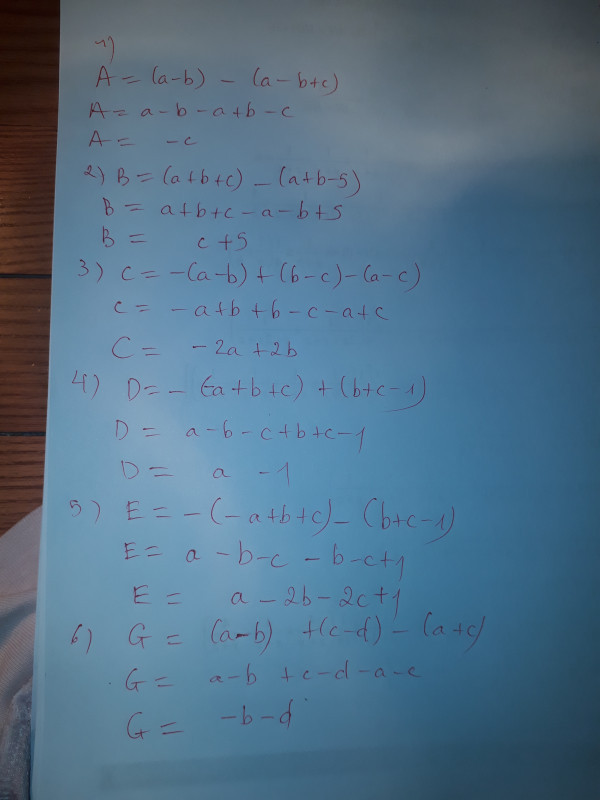 1)
A = (a-b) - (a-b+c)
A = a-b-a+b-c
A = -c
2) B = (a+b+c) - (a+b-5)
B = a+b+c-a-b+5
B = c+5
3) C = -(a-b) + (b-c) - (a-c)
C = -a+b+b-c-a+c
C = -2a+2b
4) D = - (-a+b+c) + (b+c-1)
D = a-b-c+b+c-1
D = a -1
5) E = -(-a+b+c) - (b+c-1)
E = a -b-c -b-c+1
E = a-2b-2c+1
6) G = (a-b) +(c-d) - (a+c)
G = a-b +c-d-a-c
G = -b-d